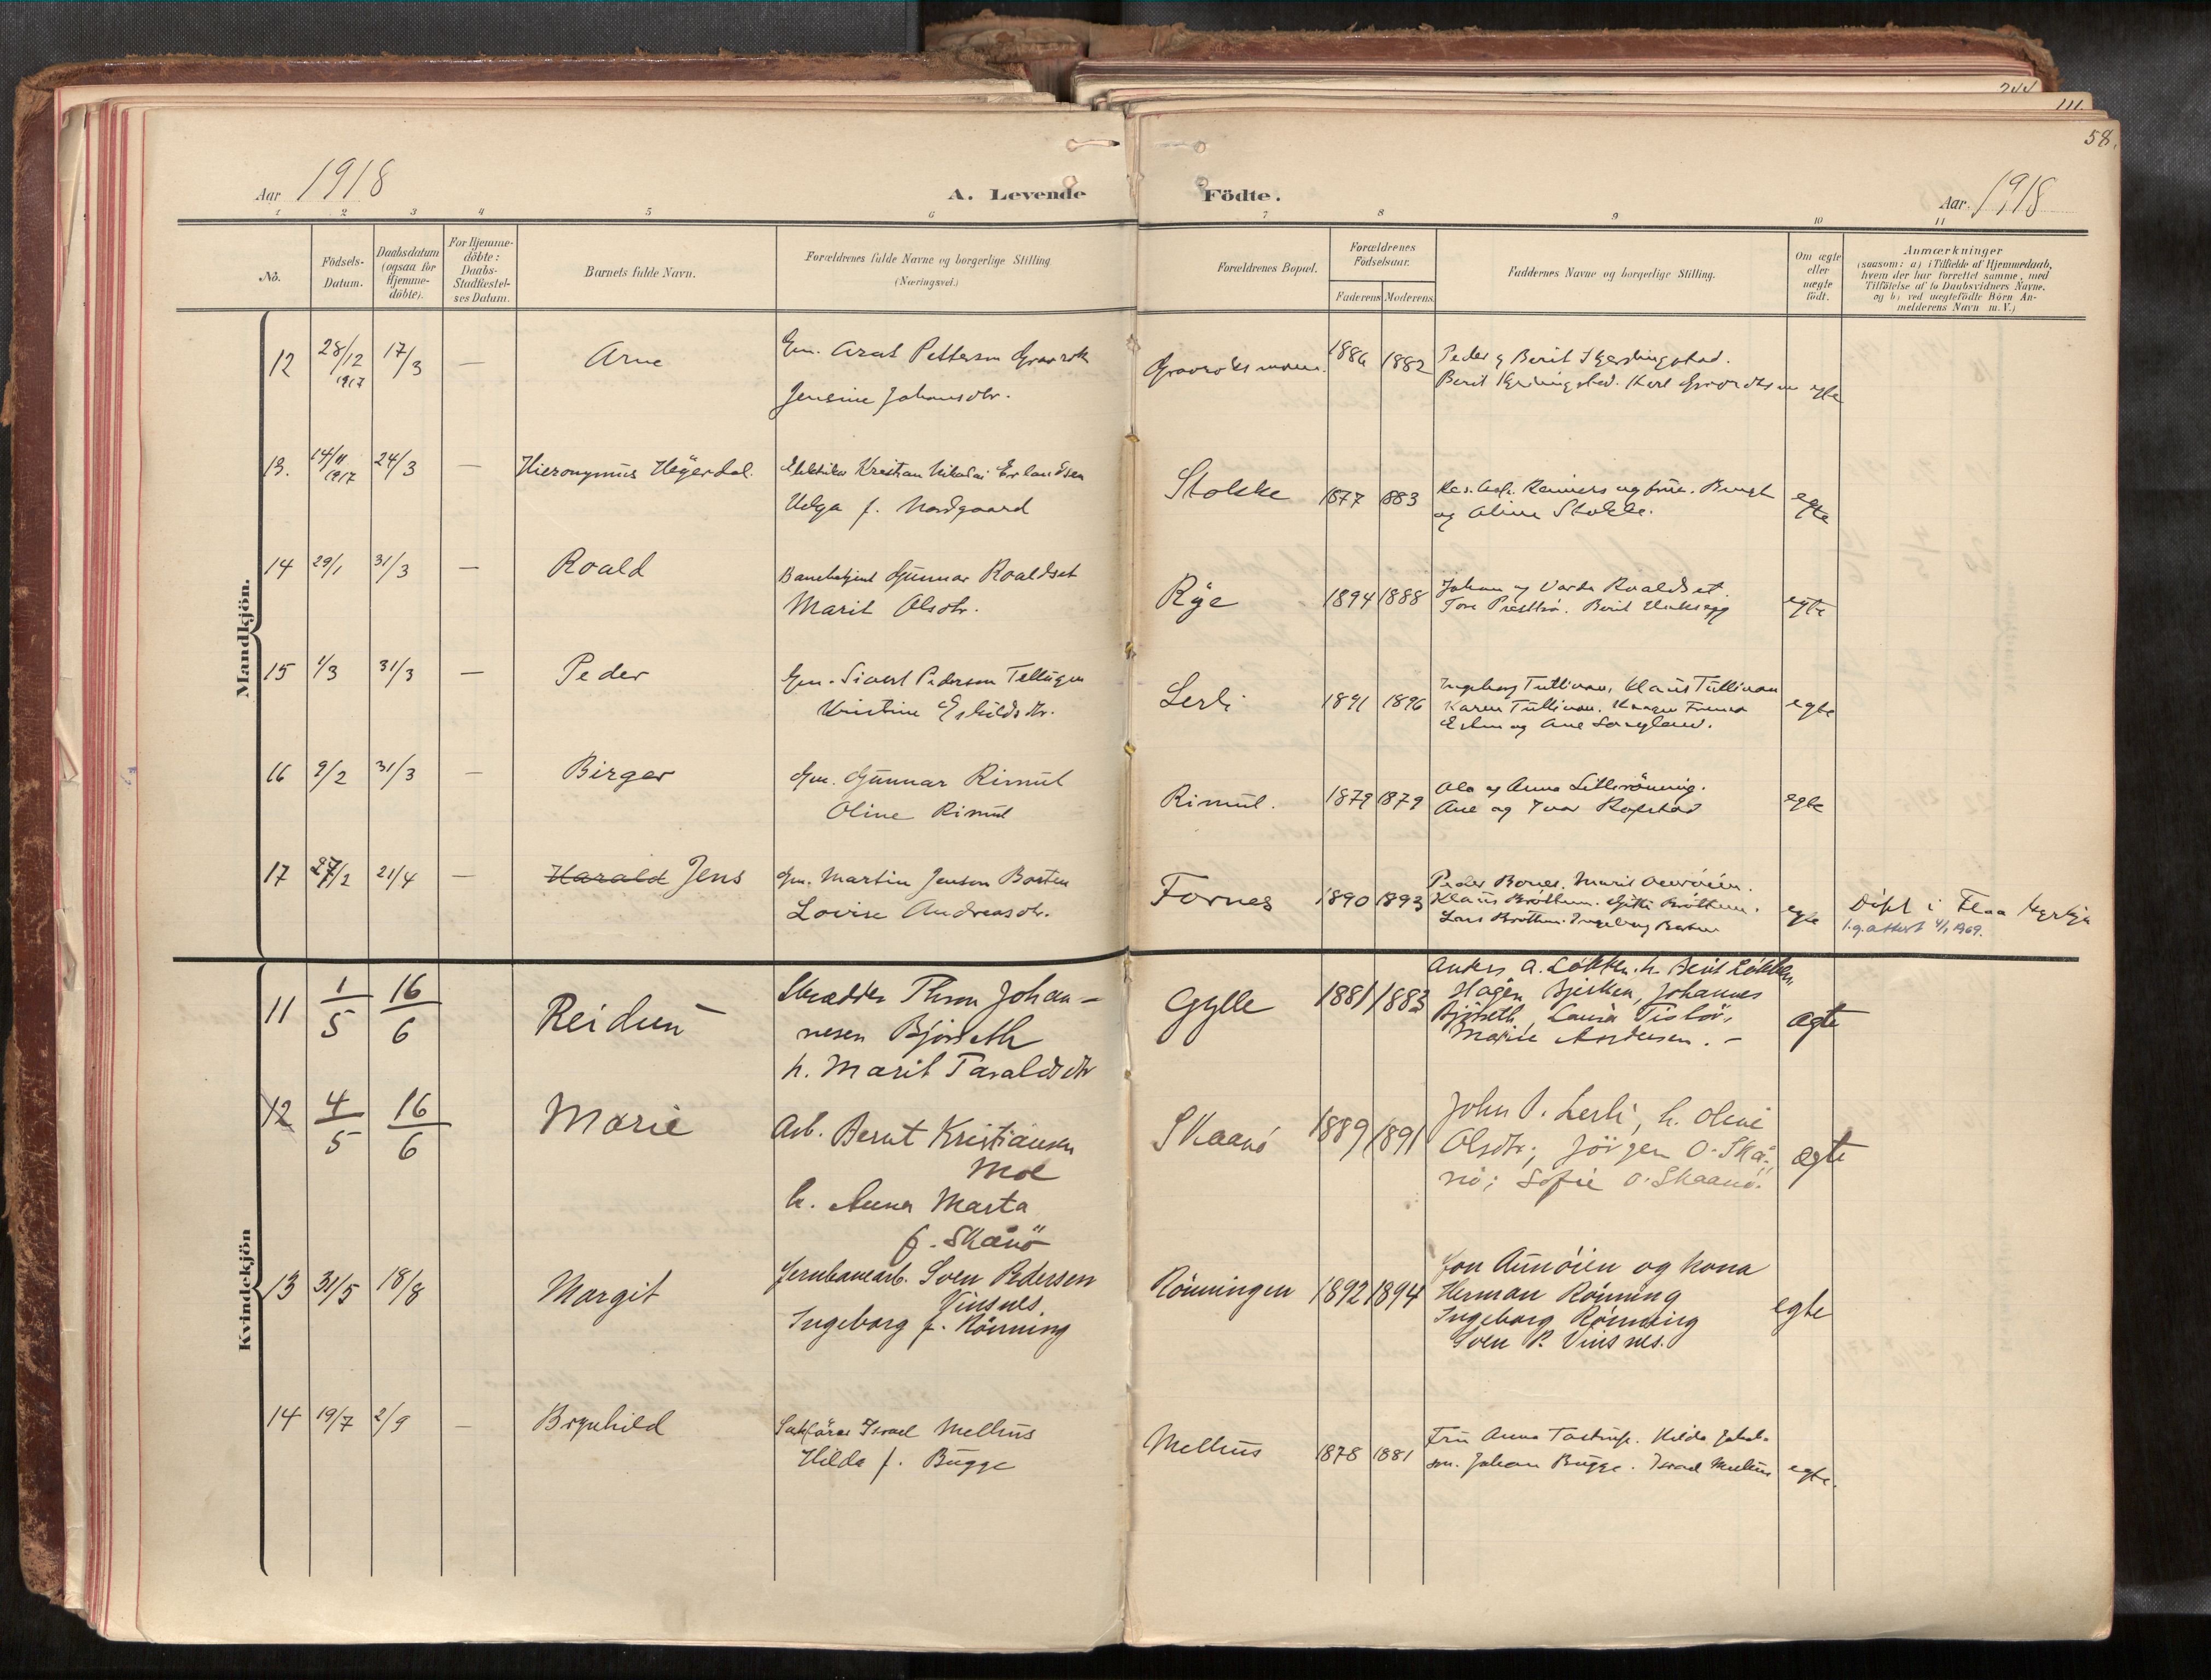 244
111.
58.
Aar 1918
A. Levende Födte.
Aar. 1918
1 2 3 4 5 6 7 8 9 10 11
No.
Födsels-Datum.
Daabsdatum (ogsaa for Hjemme-döbte).
For Hjemme-döbte: Daabs-Stadfæstel-ses Datum.
Barnets fulde Navn.
Forældrenes fulde Navne og borgerlige Stilling
(Næringsvei.)
Forældrenes Bopæl.
Forældrenes Födselsaar.
Faderens Moderens
Faddernes Navne og borgerlige Stilling.
Om ægte eller uægte födt.
Anmærkninger
(saasom: a) i Tilfælde af Hjemmedaab,
hvem der har forrettet samme, med
Tilföielse af to Daabsvidners Navne.
og b) ved uægtefödte Börn An-
melderens Navn m. V.)
Mandkjön.
12 28/12 1917 17/3 — Arne
Gm. Pettersen
Jensine Johansdtr.
1882
Peder og Berit
Berit Karl
egte
13. 14/11 1917 24/3 — Hieronymus Heyerdal.
Kristian Nikolai Erlandsen
Helga f. Nordgaard
Stokke 1877 1883
og frue. Bengt
og Oline Stokke.
egte
14 29/1 31/3 — Roald
Gunnar Roaldset
Marit Olsdtr.
Rye 1894 1888
Johan og Roaldset.
Tore Berit
egte
15 1/3 31/3 — Peder
Gm. Sivert Pederson
Kristine Eskildsdtr.
Lerli 1891 1896
Ingeborg Klaus
Karen
og Ane
egte
16 9/2 31/3 — Birger
Gm. Gunnar Rimul
Oline Rimul
Rimul. 1879 1879
Ola og Anna Litlerönning.
Ane og Ivar
egte
17 27/2 21/4 — Harald Jens
Gm. Martin Jenson Borten
Lovise Andreasdtr.
Fornes 1890 1893
Peder Marit
Klaus Bröttem. Gitti Bröttem.
Lars Bröttem. Ingeborg
egte
Döpt i Flaa kyrkje
l.g.attest 4/1 1969.
Kvindekjön
11 1/5 16/6 Reidun
Skrædder Johan-
nesen Björseth
h. Marit Taraldsdtr
Gylle 1881 1883
Anders A. Løkken. h. Berit Løkken,
Hagen Johannes
Björseth, Laura
Marie Andersen. –
ægte
12 4/5 16/6 Marie
Arb. Bernt Kristiansen
Moe
h. Anna Marta
f. Skanö
Skaanö 1889 1891
John P. Lerli, h. Oline
Olsdtr; Jörgen O. Ska-
nö; Sofie O. Skaanö.
ægte
13 31/5 18/8 Margit
Jernbanearb. Sven Pedersen
Vinsnes.
Ingeborg f. Rönning
Rönningen 1892 1894
Jon Aunöien og kona
Herman Rönning
Ingeborg Rönning
Sven P. Vinsnes.
egte
14 19/7 2/9 — Brynhild
Sakförer Israel Melhus
Hilda f. Bugge
Melhus 1878 1881
Fru Anna Hilda Jakob-
sen. Johan Bugge. Israel Melhus
egte.